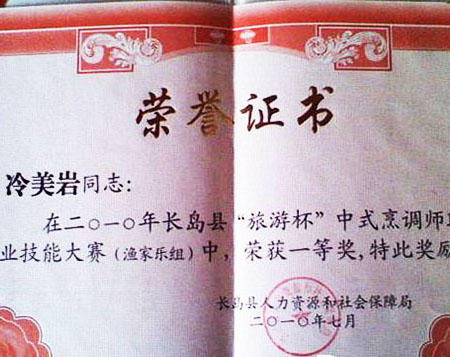 荣誉证书
冷美岩同志:
在二〇一〇年长岛县“旅游杯”中式烹调师
业技能大赛(渔家乐组)中,荣获一等奖,特此奖励
长岛县人力资源和社会保障局
二〇一〇年七月